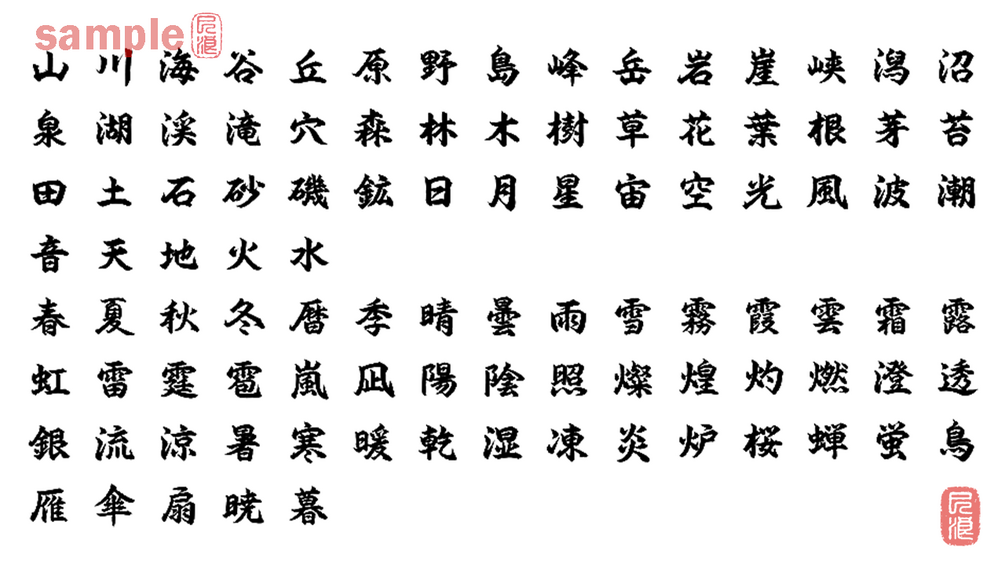 sample
山川海谷丘原野島峰岳岩崖峡潟沼
泉湖渓滝穴森林木樹草花葉根芽苔
田土石砂磯鉱日月星宙空光風波潮
音天地火水
春夏秋冬暦季晴曇雨雪霧霞雲霜露
虹雷霆雹嵐凪陽陰照燦煌灼燃澄透
銀流涼暑寒暖乾湿凍炎炉桜蝉蛍鳥
雁傘扇暁暮